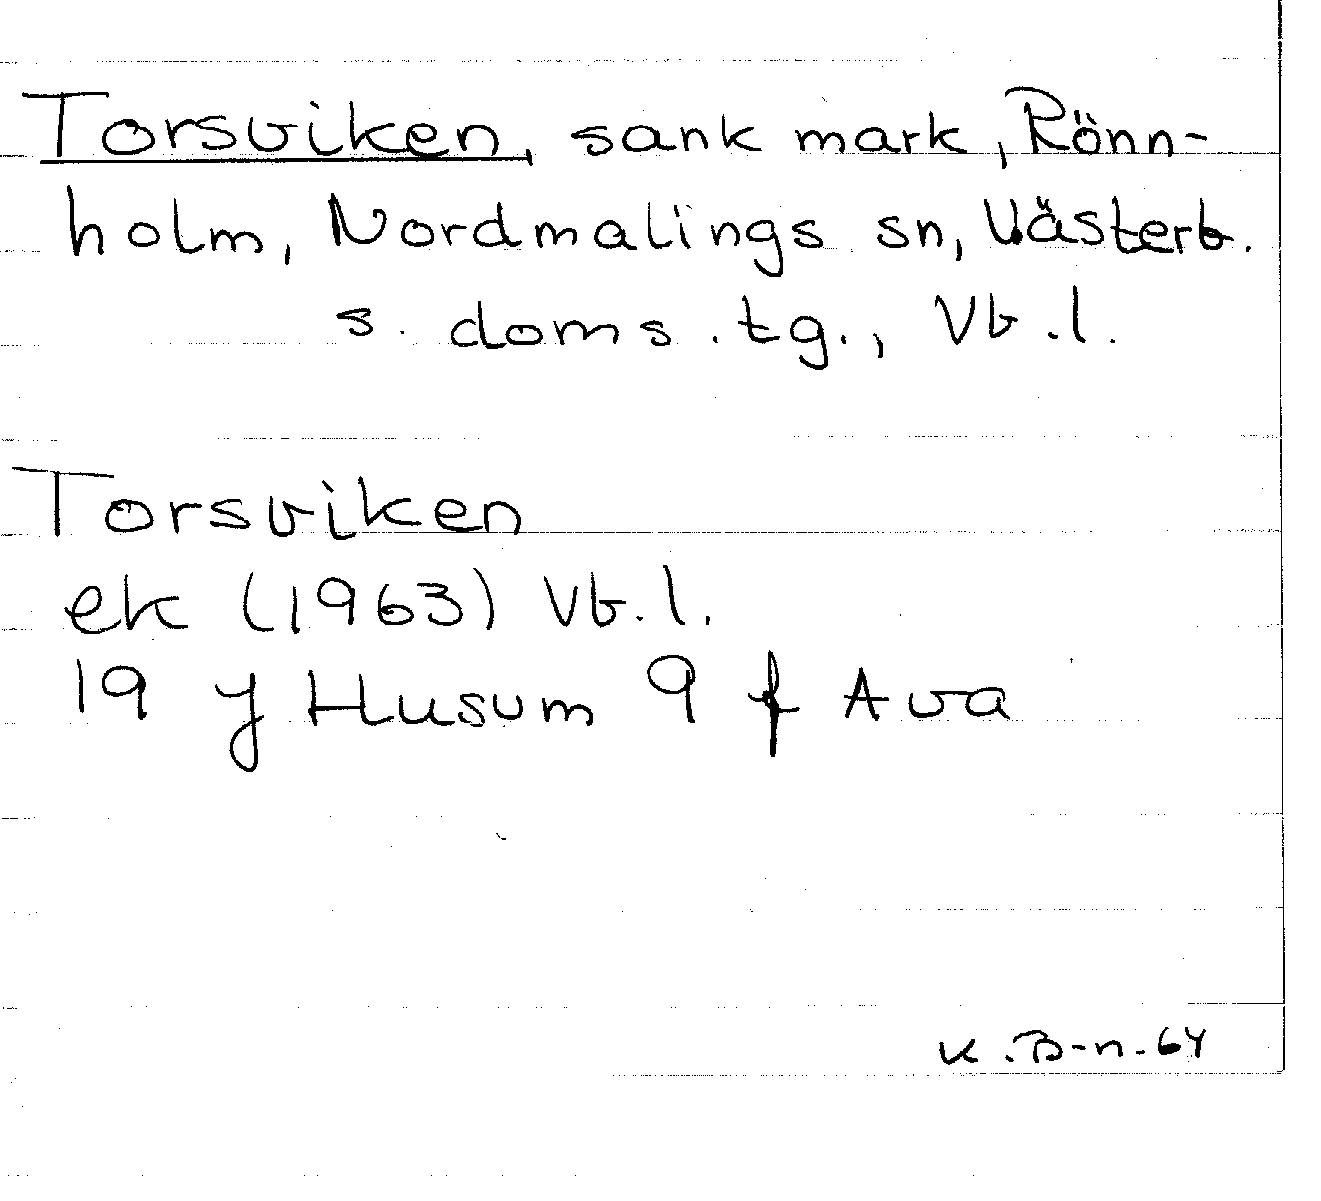 Torsviken, sank mark, Rönn-
holm, Nordmalings sn, Västerb.
s. doms. tg., Vb. l.
Torsviken
ek (1963) Vb. l.
19 y Husum 9 f Ava
K. B-n. 64